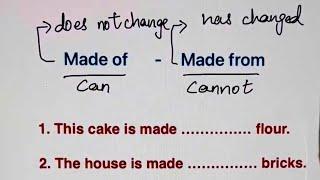 does not change has changed
Made of - Made from
can cannot
1. This cake is made ............... flour.
2. The house is made .............. bricks.